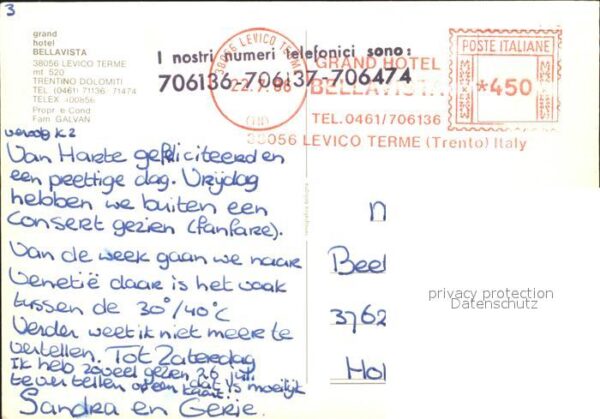 3
grand
hotel
BELLAVISTA
38056 LEVICO TERME
mt 520
TRENTINO DOLOMITI
TEL (0461) 71136 71474
TELEX 400856
Propr. e Cond
Fam GALVAN
I nostri numeri telefonici sono:
706136-706137-706474
38056 LEVICO TERME
22.7.86
(TN)
GRAND HOTEL
BELLAVISTA
TEL. 0461/706136
38056 LEVICO TERME (Trento) Italy
POSTE ITALIANE
*450
vervolg K2
Van Harte gefeliciteerd en
een prettige dag. Vrijdag
hebben we buiten een
Consert gezien (fanfare).
Van de week gaan we naar
Venetië daar is het vaak
tussen de 30°/40°C
Verder weet ik niet meer te
vertellen. Tot Zaterdag
26 juli
Ik heb zoveel gezien dat is moeilijk
te vertellen op een kaart.
Sandra en Gerie.
N
Beel
3762
Hol
privacy protection
Datenschutz